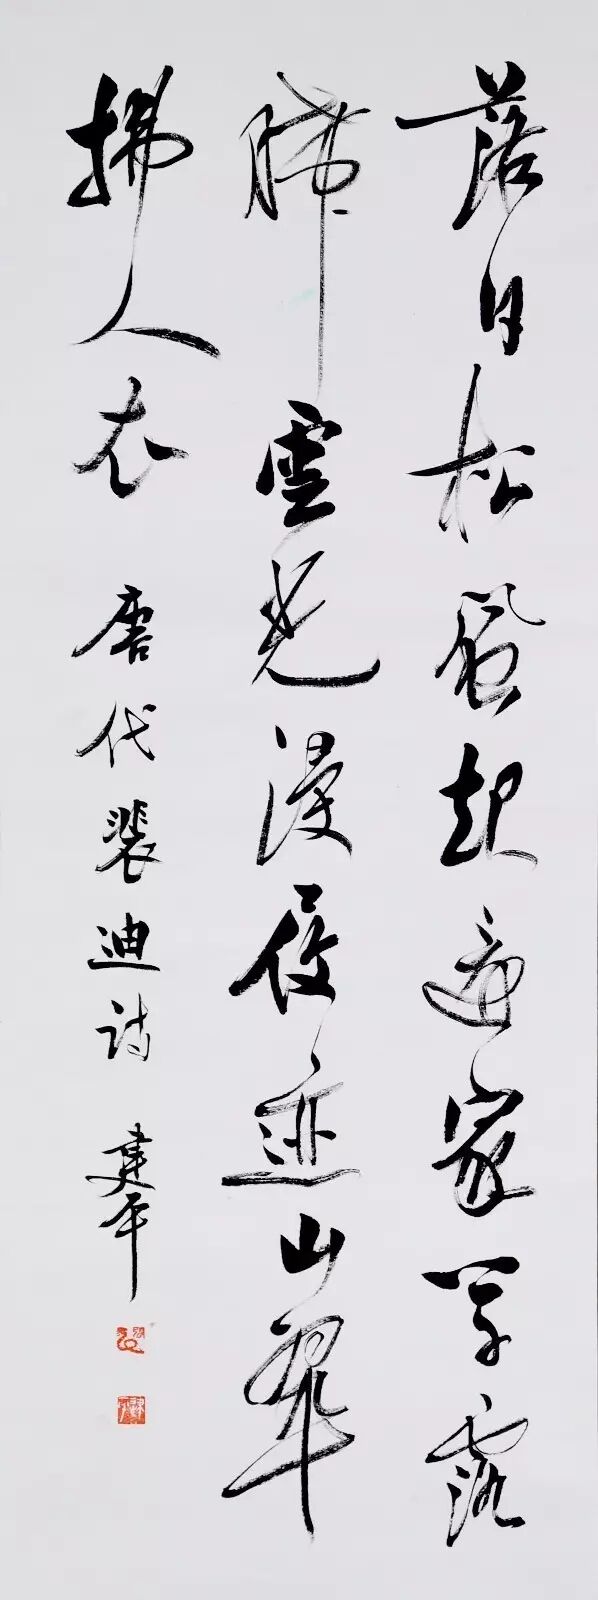 落日松風起還家草露
晞雲光浸履迹山翠
拂人衣 唐代裴迪詩 建平